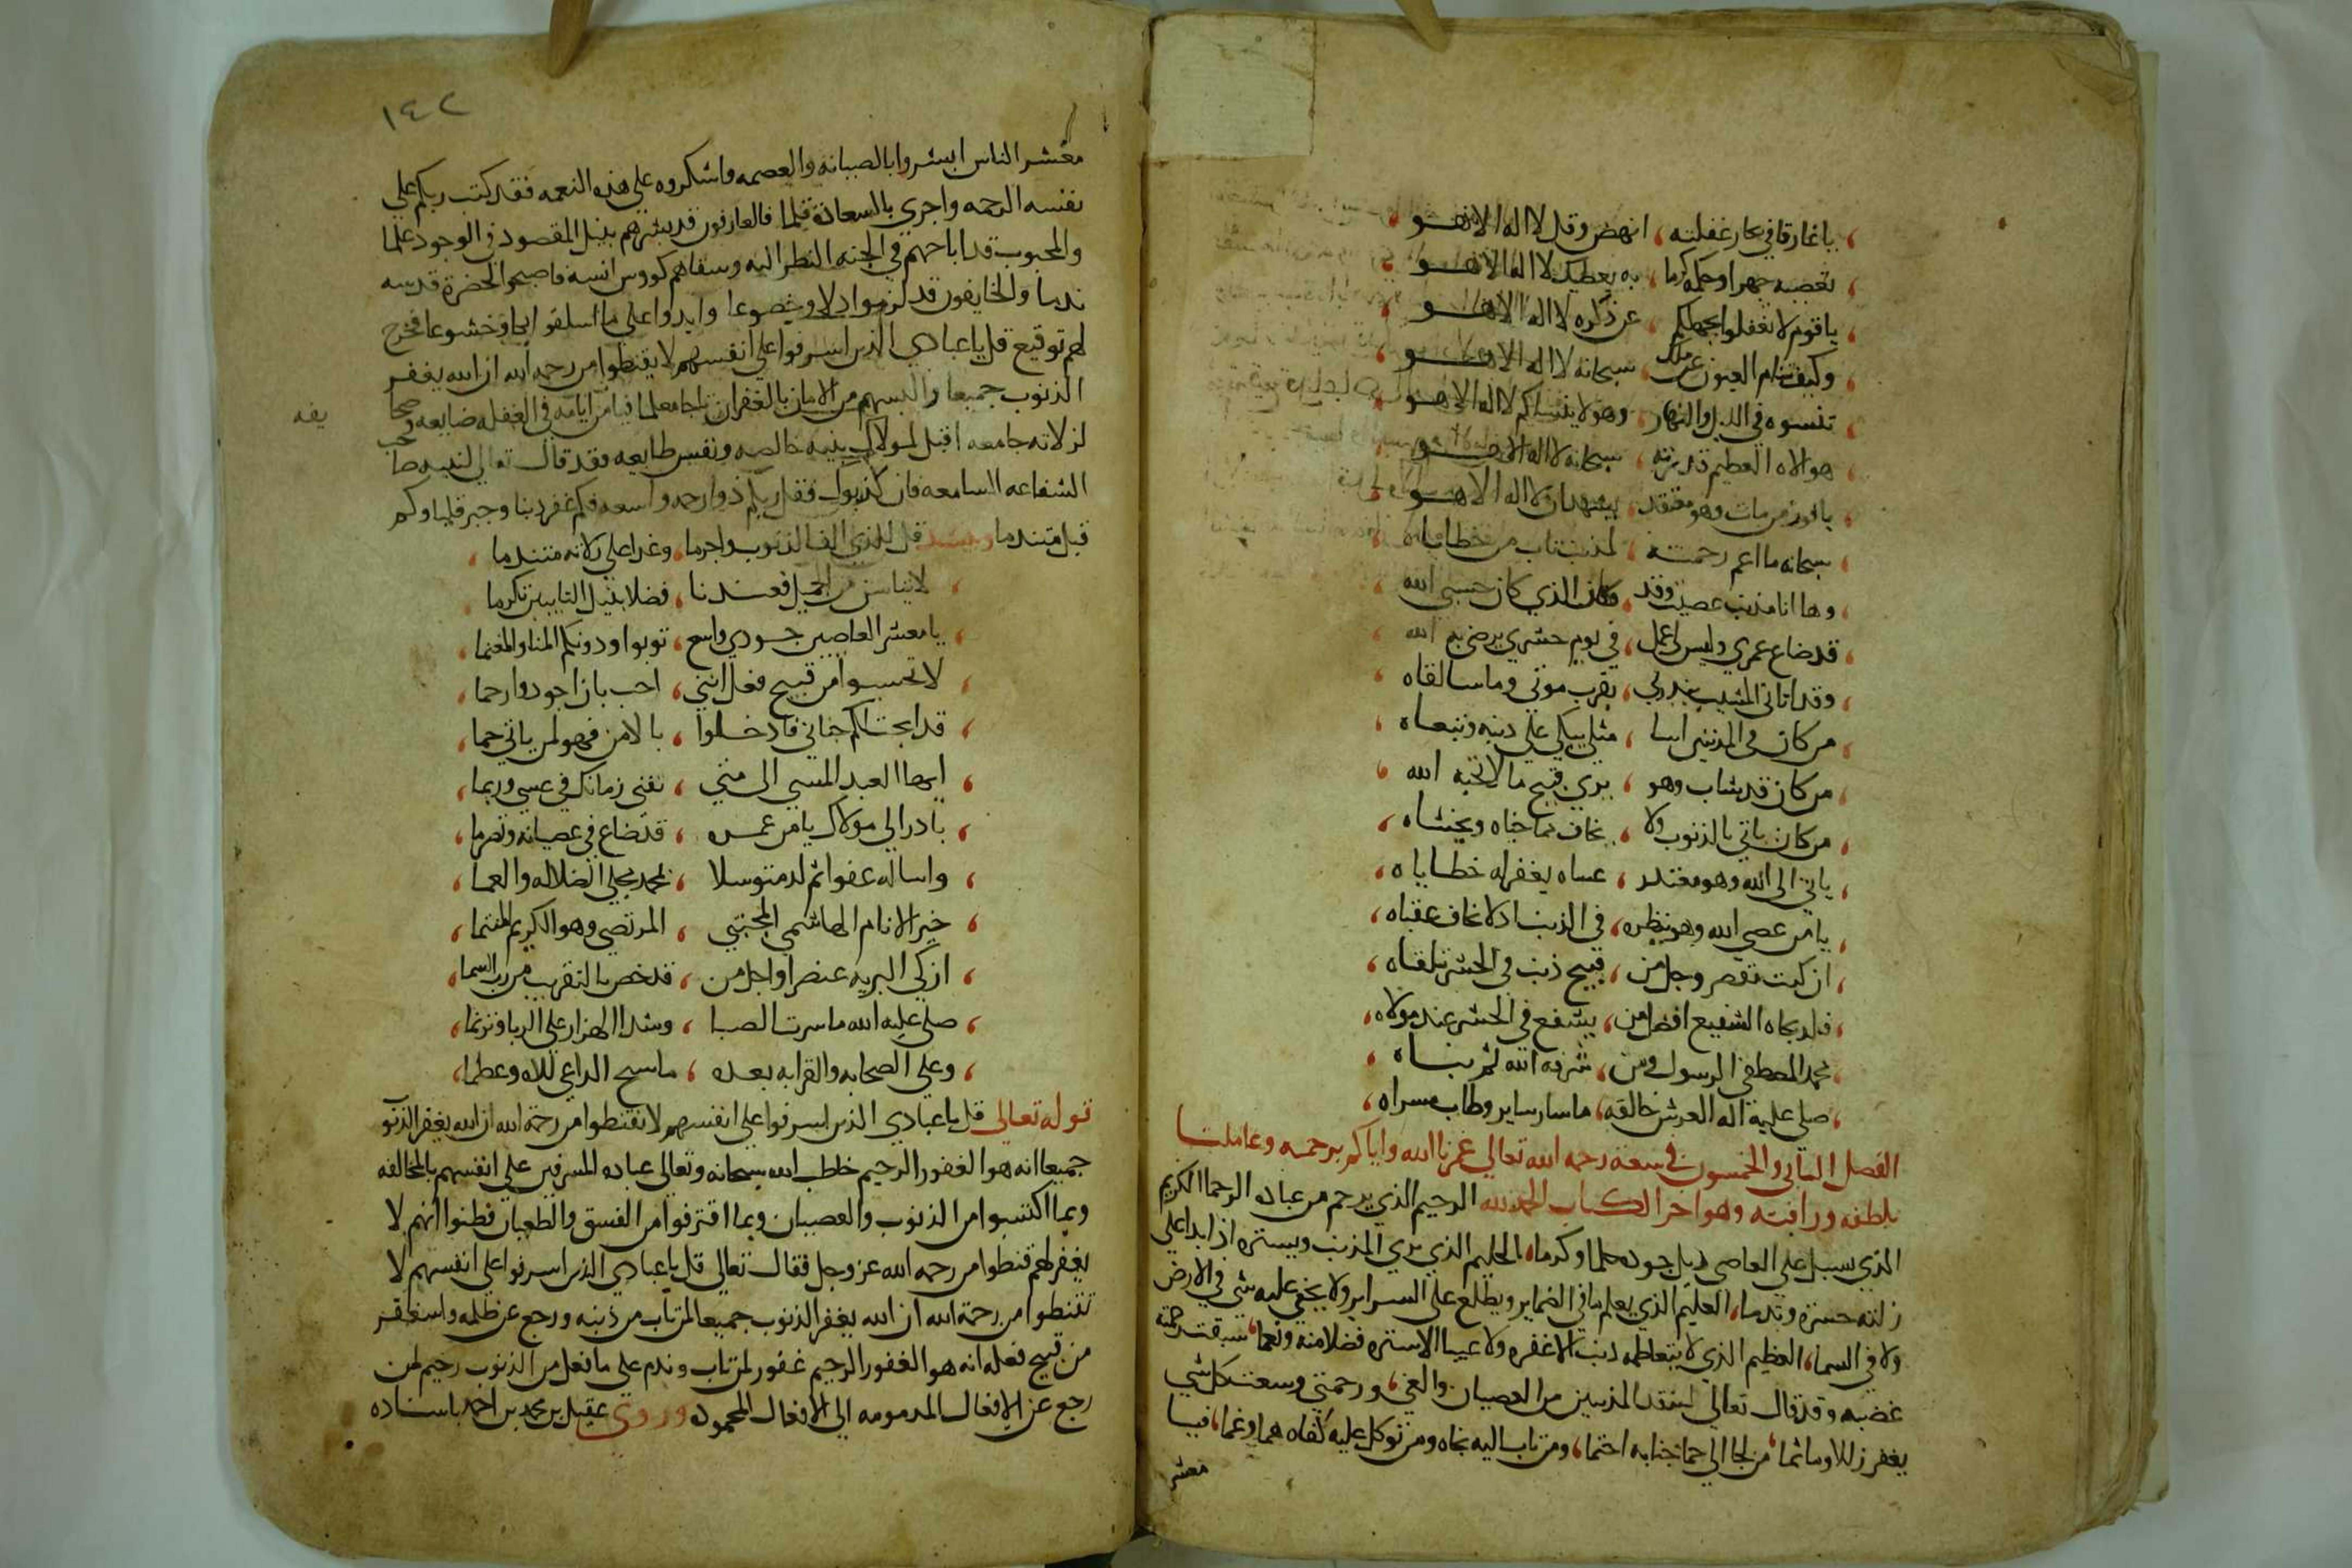 يا غارقا في بحار غفلته ، انهض وقل لا اله الا هو
تعصيه جهرا وحمله كرما ، به يعطيك لا اله الا هو
يا قوم لا تغفلوا بجهلكم ، عن ذكره لا اله الا هو
وكيف تنام العيون عن ملك ، سبحانه لا اله الا هو
تنسوه في الليل والنهار ، وهو لا ينساكم لا اله الا هو
هو الاه العظيم قدرته ، سبحانه لا اله الا هو
يا فوز من مات وهو معتقد ، بيشهدان لا اله الا هو
سبحانه ما اعم رحمته ، لمذنب تاب من خطاياه
وها انا مذنب عصيت وقد ، كان الذي كان حسبي الله
قد ضاع عمري وليس لي عمل ، في يوم حشري يرضى به الله
وقد اتاني المشيب ينذرني ، بقرب موتي وما سالقاه
من كان في المذنبين اسا ، مثلي يبكي على ذنبه وينعاه
من كان قد شاب وهو ، يري قبيح ما لا يحبه الله
من كان ياتي بالذنوب ولا ، يخاف مما جناه ويخشاه
ياتي الى الله وهو معتذر ، عساه يغفر له خطاياه
يا من عصى الله وهو ينظره ، في الذنب اذ لا تخاف عقباه
ان كنت تقصر وجل من ، قبيح ذنب في الحشر تلقاه
فلذ بجاه الشفيع افضل من ، يشفع في الحشر عند مولاه
محمد المصطفى الرسول ومن ، شرفه الله ثم نباه
صلى عليه اله العرش خالقه ، ما سار ساير وطاب مسراه
الفصل الثاني والخمسون في سعة رحمه الله تعالى غمرنا الله واياكم برحمته وعاملنا
بلطفه ورافته وهو اخر الكتاب الحمد لله الرحيم الذي يرحم من عباده الرحما الكريم
الذي يسبل على العاصي ذيل جوده حلما وكرما ، الحليم الذي يري المذنب ويستره اذ ابدا على
زلته حسرة وندما ، العليم الذي يعلم ما في الضماير ويطلع على السراير ولا يخفى عليه شي في الارض
ولا في السما ، العظيم الذي لا يتعاظمه ذنب الا غفره ولا عيبا الا ستره فضلا منه ونعما ، سبقت رحمته
غضبه وقد قال تعالى لينقذ المذنبين من العصيان والغي ، ورحمتي وسعت كل شي
يغفر زللا وماثما ، من لجا الى حما جنابه احتما ، ومن تاب اليه نجاه ومن توكل عليه كفاه هما وغما ، فيا
معشر
١٤٢
معشر الناس ابشروا بالصيانه والعصمه واشكروه على هذه النعمه فقد كتب ربكم على
نفسه الرحمه واجرى بالسعادة قلما فالعارفون قد بشرهم بنيل المقصود في الوجود علما
والمحبوب قد اباحهم في الجنه النظر اليه وسقاهم كووس انسه فاصبحوا لحضرة قدسه
ندما والخايفون قد لزموا ذلا وخضوعا وابدوا على ما اسلفوا بكا وخشوعا فخرج
لهم توقيع قل يا عبادي الذين اسرفوا على انفسهم لا تقنطوا من رحمه الله ان الله يغفر
الذنوب جميعا والبسهم من الامان بالغفران تاجا معلما فيا من ايامه في الغفله ضايعه وصحايفه
لزلاته جامعه اقبل لمولاك بنيه خالصه ونفس طايعه فقد قال تعالى لنبيه صاحب
الشفاعه السامعه فان كذبوك فقل ربكم ذوا رحمه واسعه فكم غفر ذنبا وجبر قلبا وكم
قبل متندما وينشد قل للذي الف الذنوب واجرما ، وغدا على زلاته متندما ،
لا تياسن من الجميل فعندنا ، فضلا ينيل التايبين تكرما
يا معشر العاصين جودي واسع ، توبوا ودونكم المنا والمغنما
لا تحسبوا من قبيح فعل انني ، احب بان اجود وارحما ،
قد ابحت لكم جناني فادخلوا ، بالامن فهو لمن ياتي حما ،
ايها العبد المسي الى متي ، تفني زمانك في عسي وربما ،
بادر الى مولاك يا من عمره ، قد ضاع في عصيانه وتصرما ،
واساله عفوا ثم لذ متوسلا ، بمحمد مجلي الضلاله والعما ،
خير الانام الهاشمي المجتبي ، المرتضى وهو الكريم المنتما ،
ازكى البريه عنصرا واجل من ، قد خص بالتقريب من رب السما ،
صلى عليه الله ما سرت الصبا ، وشدا الهزار على الربا وترنما ،
وعلى الصحابه والقرابه بعده ، ما سبح الداعي للاه وعظما ،
قوله تعالى قل يا عبادي الذين اسرفوا على انفسهم لا تقنطوا من رحمة الله ان الله يغفر الذنو
جميعا انه هو الغفور الرحيم خاطب الله سبحانه وتعالى عباده المسرفين على انفسهم بالمخالفه
وبما اكتسبوا من الذنوب والعصيان وبما اقترفوا من الفسق والطغيان فظنوا انهم لا
يغفر لهم قنطوا من رحمه الله عز وجل فقال تعالى قل يا عبادي الذين اسرفوا على انفسهم لا
تقنطوا من رحمة الله ان الله يغفر الذنوب جميعا لمن تاب من ذنبه ورجع عن ظلمه واستغفر
من قبيح فعله انه هو الغفور الرحيم غفور لمن تاب وندم على ما فعل من الذنوب رحيم لمن
رجع عن الافعال المذمومه الى الافعال المحموده وروي عقيل بن محمد بن احمد باسناده